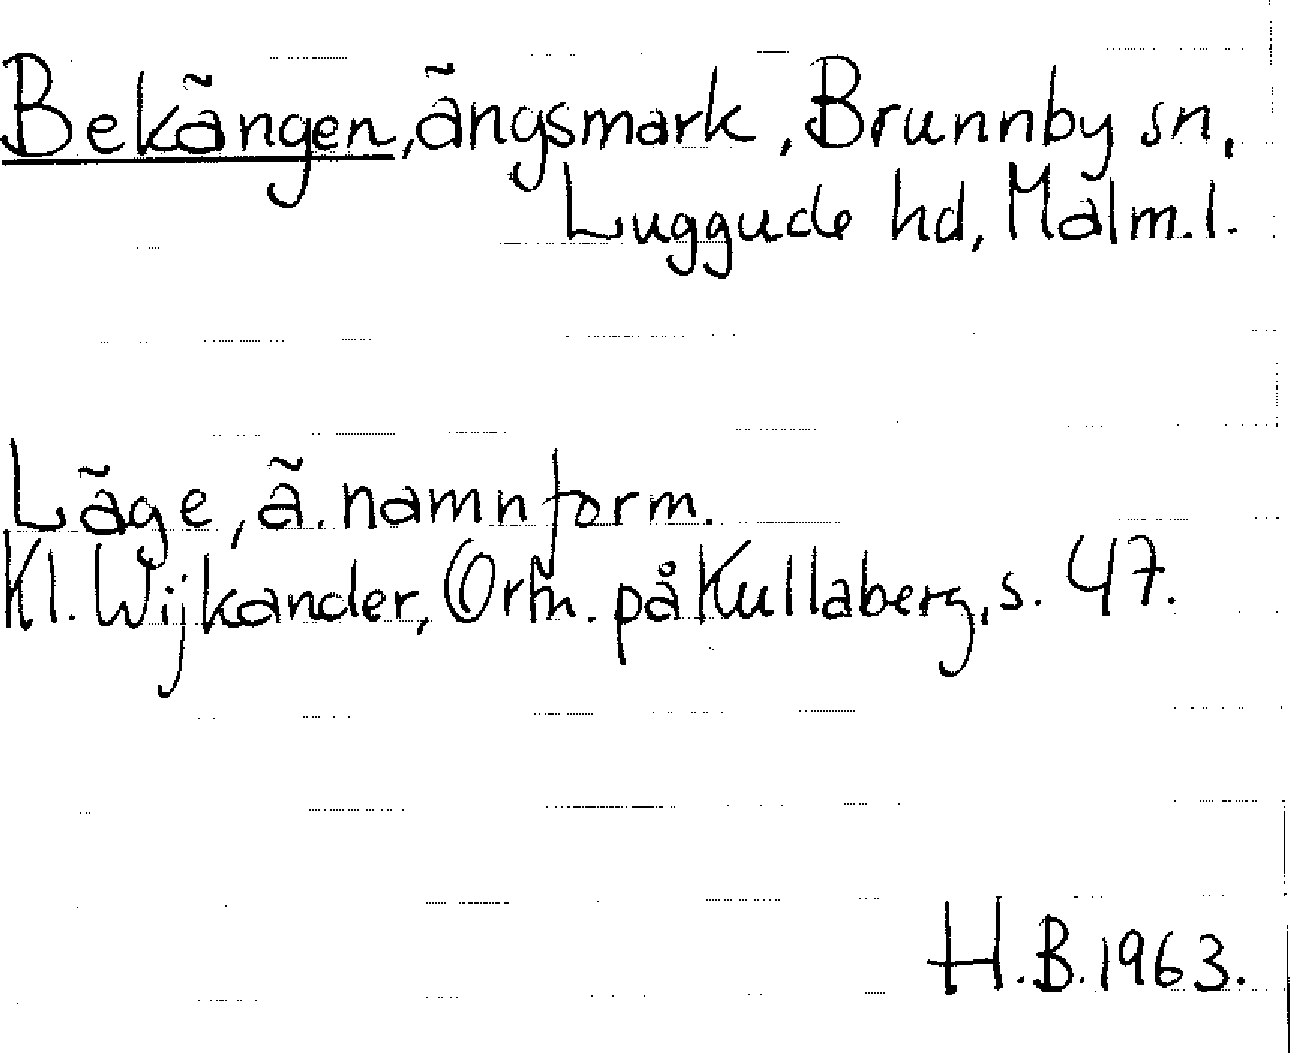 Bekängen, ängsmark, Brunnby sn,
Luggude hd, Malm.l.
Läge, ä. namnform.
Kl. Wijkander, Ortn. på Kullaberg, s. 47.
H.B. 1963.